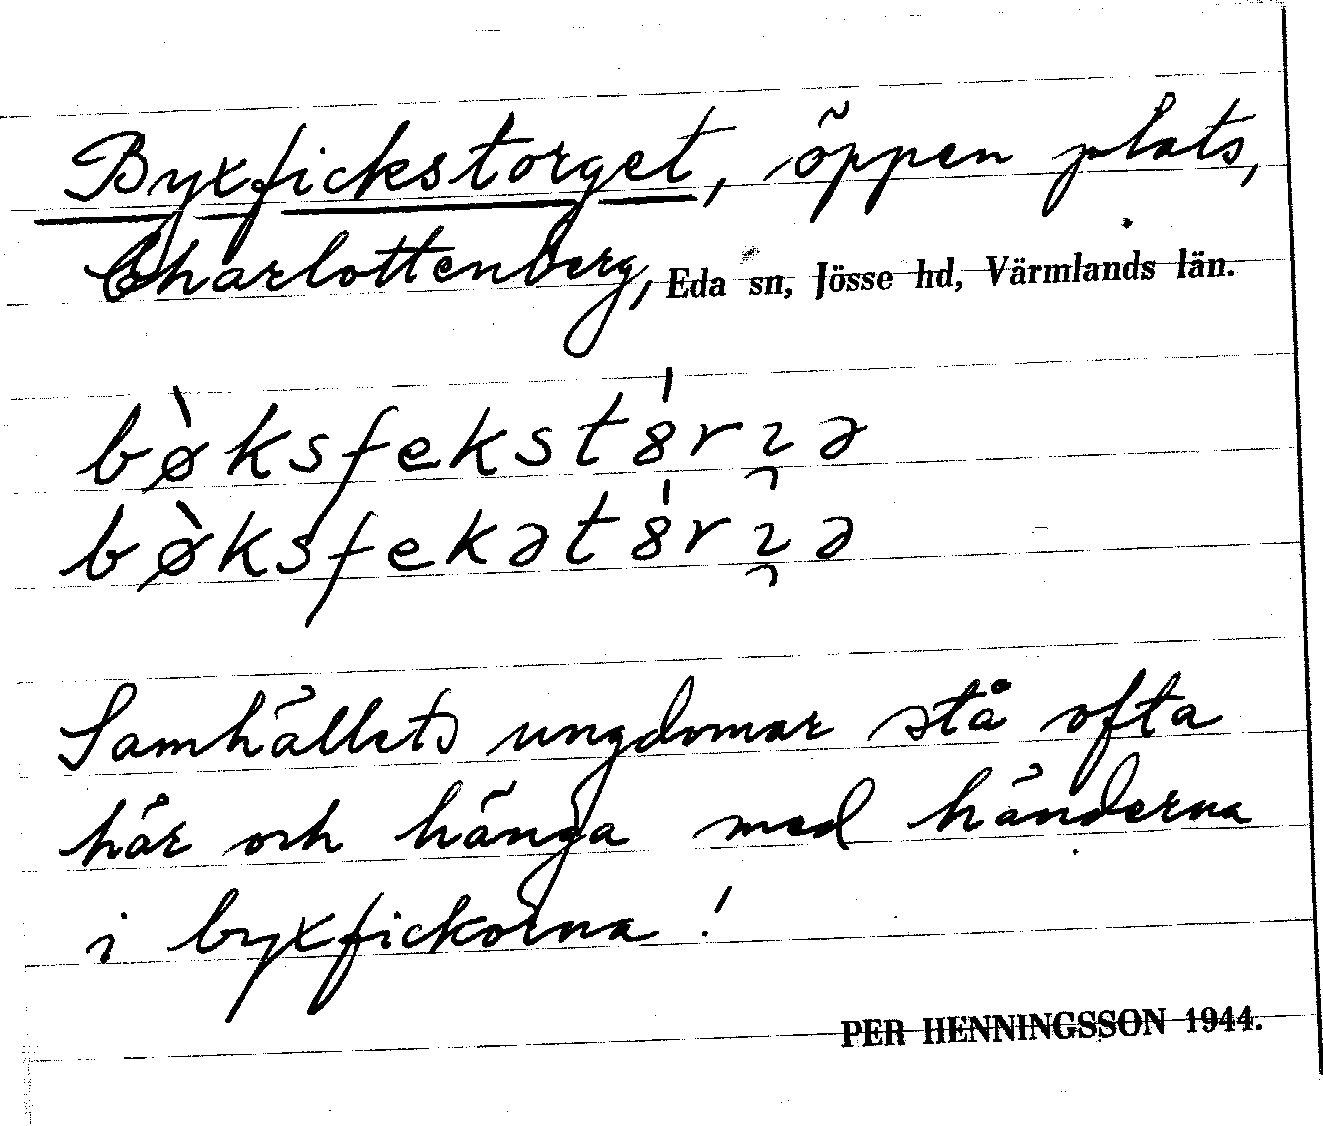 Byxfickstorget, öppen plats,
Charlottenberg, Eda sn, Jösse hd, Värmlands län.
bø̀ksfekst8́rɿ̯ə
bø̀ksfekət8́rɿ̯ə
Samhällets ungdomar stå ofta
här och hänga med händerna
i byxfickorna!
PER HENNINGSSON 1944.